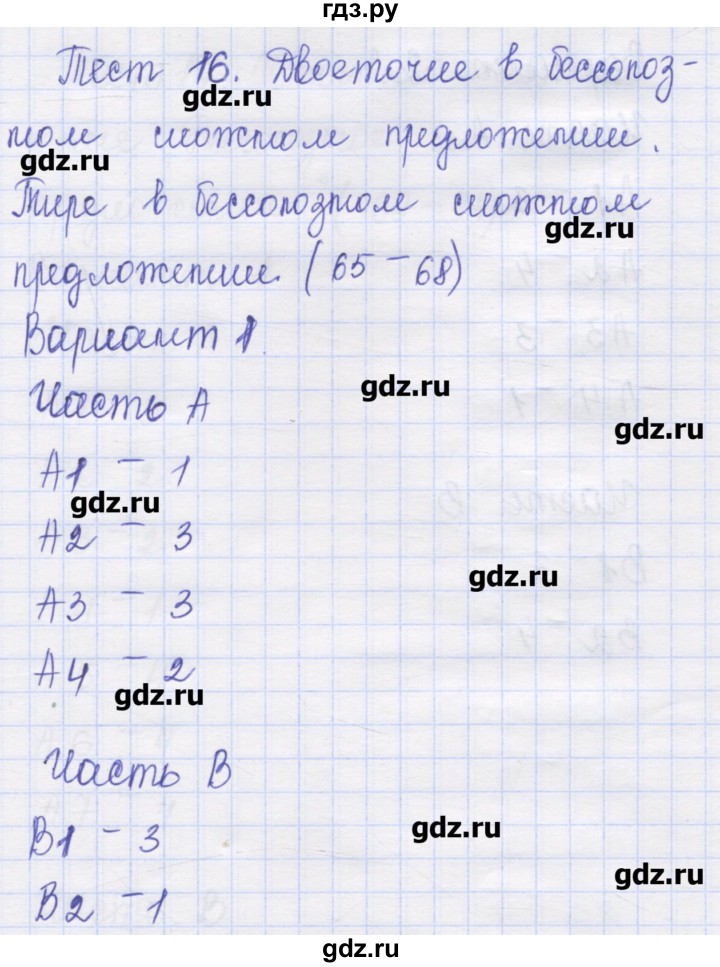 гдз.ру
Тест 16. Двоеточие в бессоюз-
gdz.ru
ном сложном предложении.
gdz.ru
Тире в бессоюзном сложном
gdz.ru
предложении. (65-68)
Вариант 1
gdz.ru
Часть А
gdz.ru
А1 - 1
gdz.ru
А2 - 3
gdz.ru
А3 - 3
А4 - 2
gdz.ru
Часть В
gdz.ru
В1 - 3
gdz.ru
В2 - 1
gdz.ru